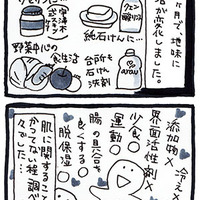 ヶ月で地味に
が変化しました。
クエン酸
純石けんに…
台所も
石けん
洗剤
arau
野菜中心の
食生活
冷え×
添加物×
界面活性剤×
少食○
運動○
腸の具合を
良くする○
脱保湿○
肌に関すること
かつてない程調べ
々でした…